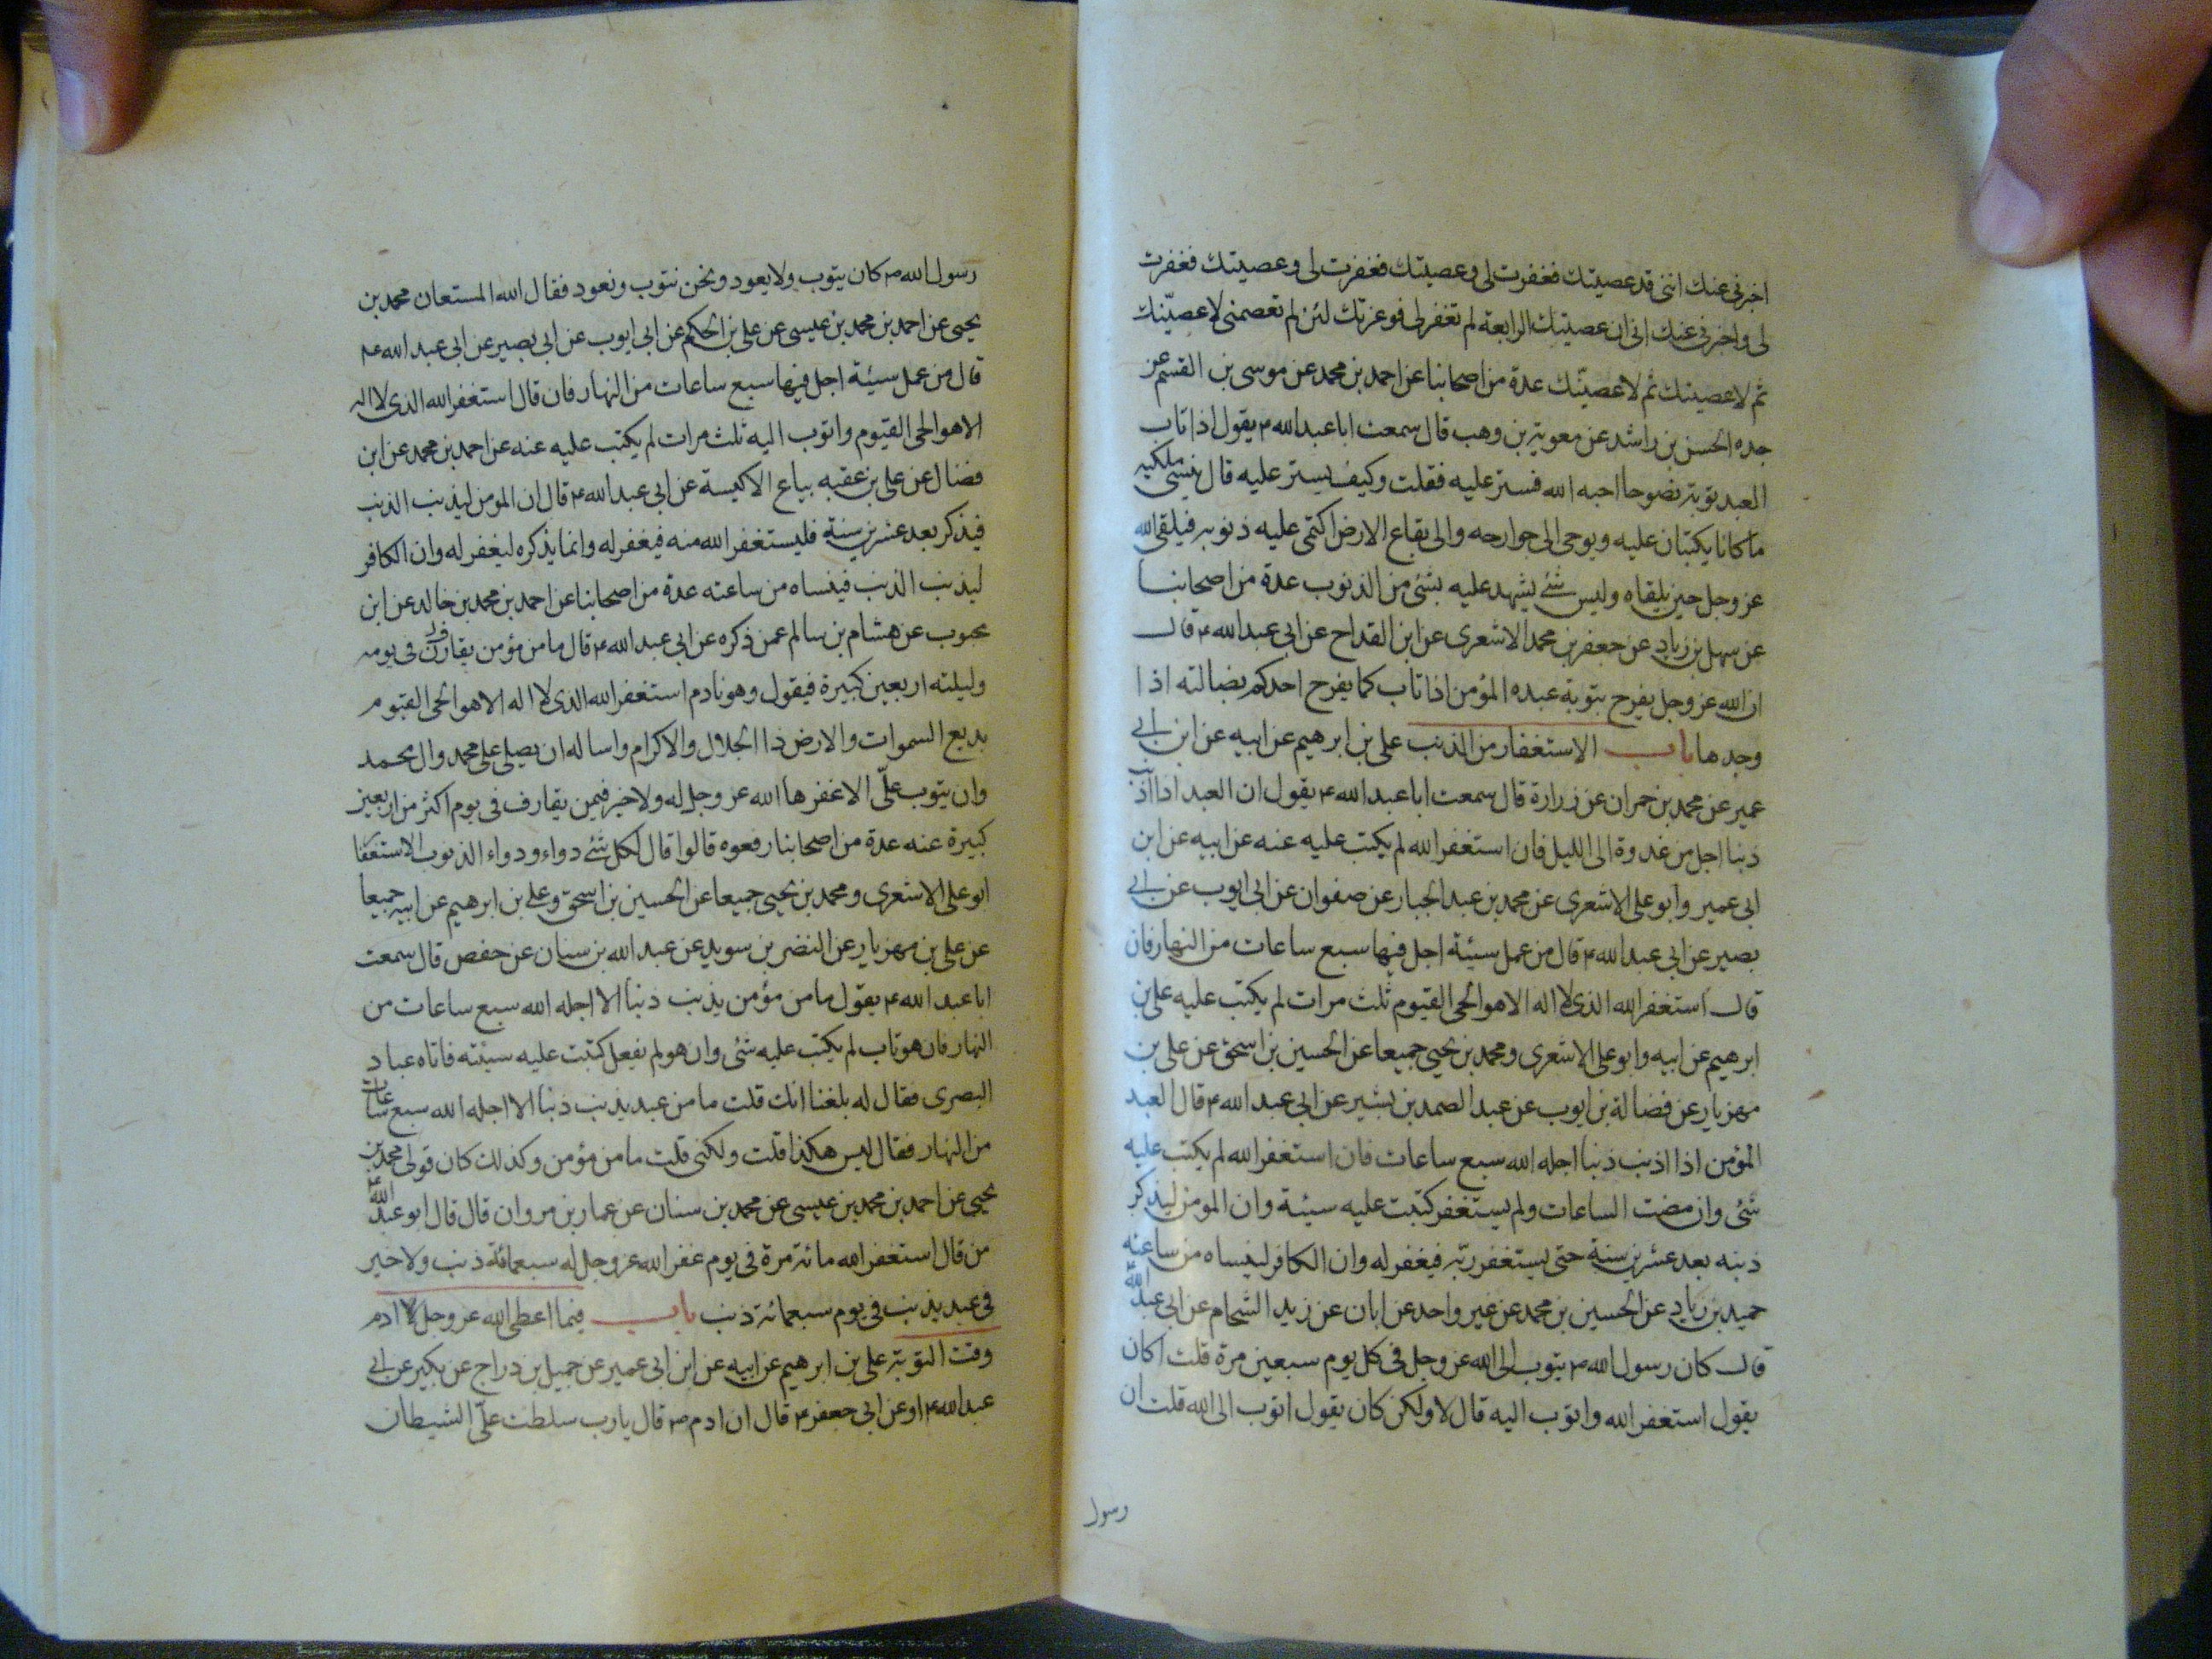 اخبرنى عنك اننى قد عصيتك فغفرت لى وعصيتك فغفرت لى وعصيتك فغفرت
لى واخبرنى عنك انى ان عصيتك الرابعة لم تغفر لى فوعزتك لئن لم تعصمنى لاعصينك
ثم لاعصينك ثم لاعصينك عدة من اصحابنا عن احمد بن محمد عن موسى بن القسم عن
جده الحسن بن راشد عن معوية بن وهب قال سمعت ابا عبد الله ع يقول اذا تاب
العبد توبة نصوحا احبه الله فستر عليه فقلت وكيف يستر عليه قال ينسى ملكيه
ما كانا يكتبان عليه ويوحى الى جوارحه والى بقاع الارض اكتمى عليه ذنوبه فيلقى الله
عز وجل حين يلقاه وليس شئ يشهد عليه بشئ من الذنوب عدة من اصحابنا
عن سهل بن زياد عن جعفر بن محمد الاشعرى عن ابن القداح عن ابى عبد الله ع قال
ان الله عز وجل يفرح بتوبة عبده المؤمن اذا تاب كما يفرح احدكم بضالته اذا
وجدها باب الاستغفار من الذنب على بن ابرهيم عن ابيه عن ابن ابى
عمير عن محمد بن حمران عن زرارة قال سمعت ابا عبد الله ع يقول ان العبد اذا اذنب
ذنبا اجل من غدوة الى الليل فان استغفر الله لم يكتب عليه عنه عن ابيه عن ابن
ابى عمير وابو على الاشعرى عن محمد بن عبد الجبار عن صفوان عن ابى ايوب عن ابى
بصير عن ابى عبد الله ع قال من عمل سيئة اجل فيها سبع ساعات من النهار فان
قال استغفر الله الذى لا اله الا هو الحى القيوم ثلث مرات لم يكتب عليه على بن
ابرهيم عن ابيه وابو على الاشعرى ومحمد بن يحيى جميعا عن الحسين بن اسحق عن على بن
مهزيار عن فضالة بن ايوب عن عبد الصمد بن بشير عن ابى عبد الله ع قال العبد
المؤمن اذا اذنب ذنبا اجله الله سبع ساعات فان استغفر الله لم يكتب عليه
شئى وان مضت الساعات ولم يستغفر كتبت عليه سيئة وان المومن ليذكر
ذنبه بعد عشرين سنة حتى يستغفر ربه فيغفر له وان الكافر لينساه من ساعته
حميد بن زياد عن الحسين بن محمد عن غير واحد عن ابان عن زيد الشحام عن ابى عبد الله
قال كان رسول الله ص يتوب الى الله عز وجل فى كل يوم سبعين مرة قلت اكان
يقول استغفر الله واتوب اليه قال لا ولكن كان يقول اتوب الى الله قلت ان
رسول
رسول الله ص كان يتوب ولا يعود ونحن نتوب ونعود فقال الله المستعان محمد بن
يحيى عن احمد بن محمد بن عيسى عن على بن الحكم عن ابى ايوب عن ابى بصير عن ابى عبد الله ع
قال من عمل سيئة اجل فيها سبع ساعات من النهار فان قال استغفر الله الذى لا اله
الا هو الحى القيوم واتوب اليه ثلث مرات لم يكتب عليه عنه عن احمد بن محمد عن ابن
فضال عن على بن عقبه بياع الاكيسة عن ابى عبد الله ع قال ان المومن ليذنب الذنب
فيذكر بعد عشرين سنة فليستغفر الله منه فيغفر له وانما يذكره ليغفر له وان الكافر
ليذنب الذنب فينساه من ساعته عدة من اصحابنا عن احمد بن محمد بن خالد عن ابن
محبوب عن هشام بن سالم عمن ذكره عن ابى عبد الله ع قال ما من مؤمن يقارف فى يومه
وليلته اربعين كبيرة فيقول وهو نادم استغفر الله الذى لا اله الا هو الحى القيوم
بديع السموات والارض ذا الجلال والاكرام واساله ان يصلى على محمد وال محمد
وان يتوب علّى الا غفرها الله عز وجل له ولا خير فيمن يقارف فى يوم اكثر من اربعين
كبيرة عنه عدة من اصحابنا رفعوه قالوا قال لكل شئ دواء ودواء الذنوب الاستغفار
ابو على الاشعرى ومحمد بن يحيى جميعا عن الحسين بن اسحق وعلى بن ابرهيم عن ابيه جميعا
عن على بن مهزيار عن النضر بن سويد عن عبد الله بن سنان عن حفص قال سمعت
ابا عبد الله ع يقول ما من مؤمن يذنب ذنبا الا اجله الله سبع ساعات من
النهار فان هو تاب لم يكتب عليه شئى وان هو لم يفعل كتبت عليه سيئته فاتاه عباد
البصرى فقال له بلغنا انك قلت ما من عبد يذنب ذنبا الا اجله الله سبع ساعات
من النهار فقال ليس هكذا قلت ولكنى قلت ما من مؤمن وكذلك كان قولى محمد بن
يحيى عن احمد بن محمد بن عيسى عن محمد بن سنان عن عمار بن مروان قال قال ابو عبد الله ع
من قال استغفر الله مائة مرة فى يوم غفر الله عز وجل له سبعمائة ذنب ولا خير
فى عبد يذنب فى يوم سبعمائة ذنب باب فيما اعطى الله عز وجل لادم
وقت التوبة على بن ابرهيم عن ابيه عن ابن ابى عمير عن جميل بن دراج عن بكير عن ابى
عبد الله ع او عن ابى جعفر ع قال ان ادم ع قال يا رب سلطت علّى الشيطان